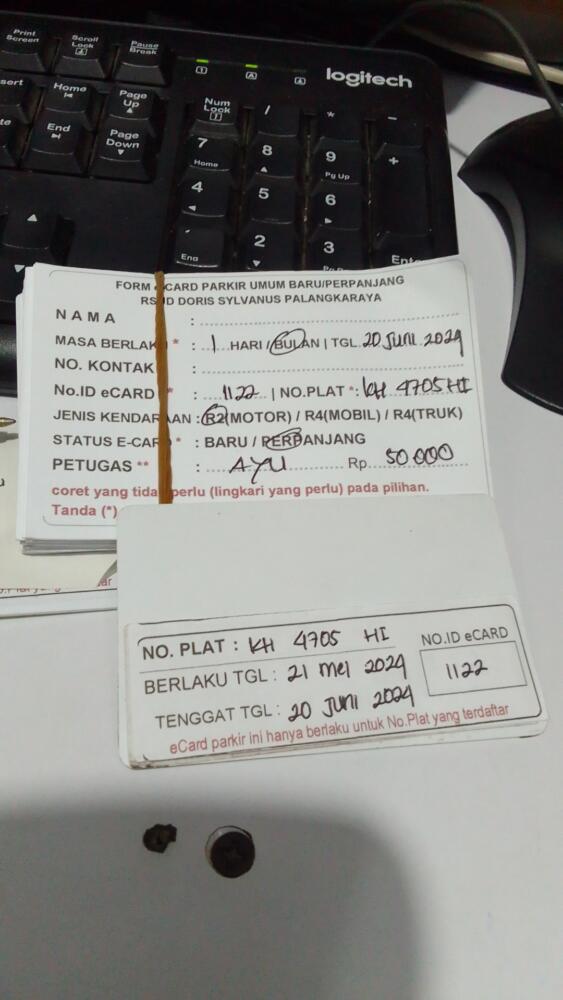 Print
Screen
Scroll
Lock
Pause
Break
logitech
Home
Page
Up
End
Page
Down
Num
Lock
/
*
-
7
Home
8
9
Pg Up
+
4
5
6
End
2
3
FORM CARD PARKIR UMUM BARU/PERPANJANG
DORIS SYLVANUS PALANGKARAYA
NAMA :
MASA BERLAK * : 1 HARI / BULAN | TGL. 20 Juni 2024
NO. KONTAK :
No.ID eCARD : 1122 | NO.PLAT *: KH 4705 HI
JENIS KENDARAAN : R2(MOTOR) / R4(MOBIL) / R4(TRUK)
STATUS E-CAR * : BARU / PERPANJANG
PETUGAS ** : AYU Rp. 50.000
coret yang tida perlu (lingkari yang perlu) pada pilihan.
Tanda (*)
NO. PLAT : KH 4705 HI
NO.ID eCARD
BERLAKU TGL : 21 Mei 2024
1122
TENGGAT TGL : 20 Juni 2024
eCard parkir ini hanya berlaku untuk No.Plat yang terdaftar